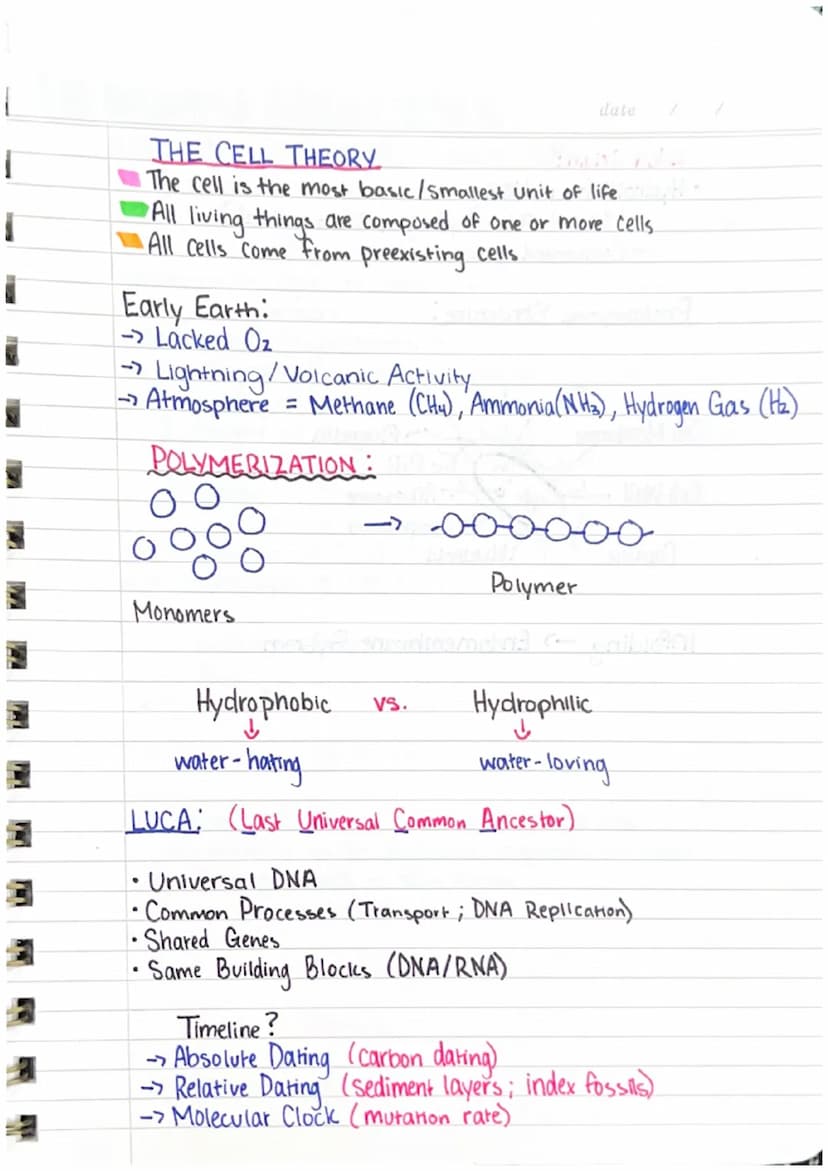 date / /
THE CELL THEORY
The cell is the most basic/smallest unit of life
All living things are composed of one or more cells
All cells come from preexisting cells
Early Earth:
→ Lacked O₂
→ Lightning/Volcanic Activity
→ Atmosphere = Methane (CH₄), Ammonia(NH₃), Hydrogen Gas (H₂)
POLYMERIZATION:
→
Polymer
Monomers
Hydrophobic vs. Hydrophilic
↓ ↓
water-hating water-loving
LUCA: (Last Universal Common Ancestor)
• Universal DNA
• Common Processes (Transport; DNA Replication)
• Shared Genes
• Same Building Blocks (DNA/RNA)
Timeline?
→ Absolute Dating (carbon dating)
→ Relative Dating (sediment layers; index fossils)
→ Molecular Clock (mutation rate)